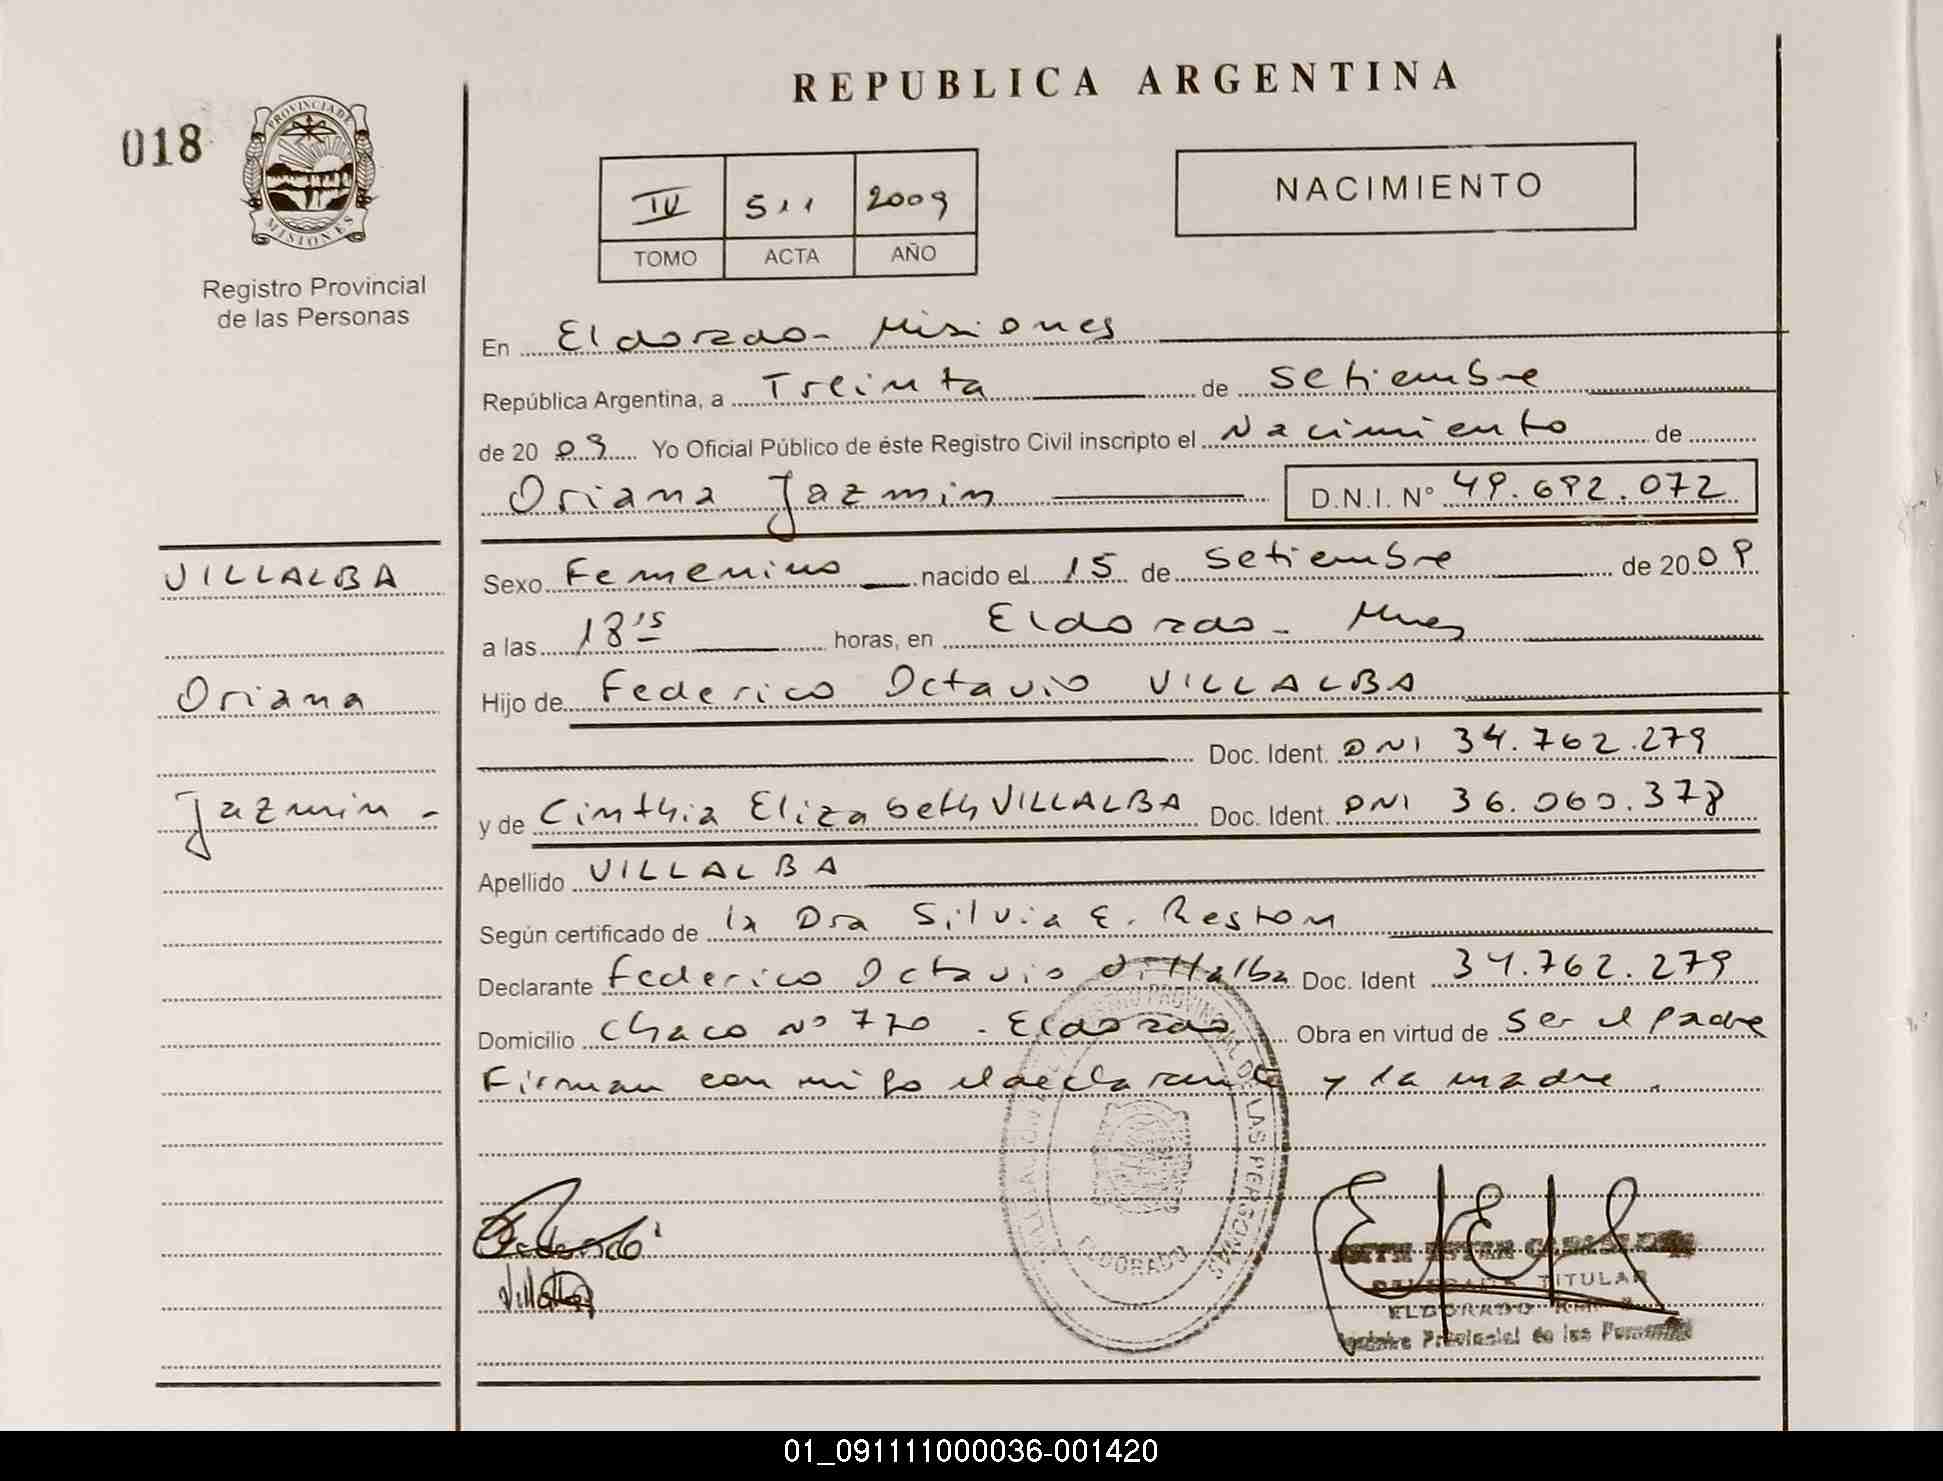 REPUBLICA ARGENTINA
018
PROVINCIA DE
MISIONES
Registro Provincial
de las Personas
IV 511 2009
TOMO ACTA AÑO
NACIMIENTO
En Eldorado - Misiones
República Argentina, a Treinta de Setiembre
de 2009 Yo Oficial Público de éste Registro Civil inscripto el Nacimiento de
Oriana Jazmin D.N.I. N° 49.692.072
VILLALBA
Oriana
Jazmin -
Sexo Femenino nacido el 15 de Setiembre de 2009
a las 18 15 horas, en Eldorado - Mnes
Hijo de Federico Octavio VILLALBA
Doc. Ident. DNI 34.762.279
y de Cinthia Elizabeth VILLALBA Doc. Ident. DNI 36.060.378
Apellido VILLALBA
Según certificado de la Dra Silvia E. Reston
Declarante Federico Octavio Villalba Doc. Ident 34.762.279
Domicilio Chaco N° 770 - Eldorado Obra en virtud de Ser el padre
Firman con migo el declarante y la madre.
PROVINCIAL DE LAS PERSONAS
ELDORADO
TITULAR
ELDORADO
Registro Provincial de las Personas
01_091111000036-001420